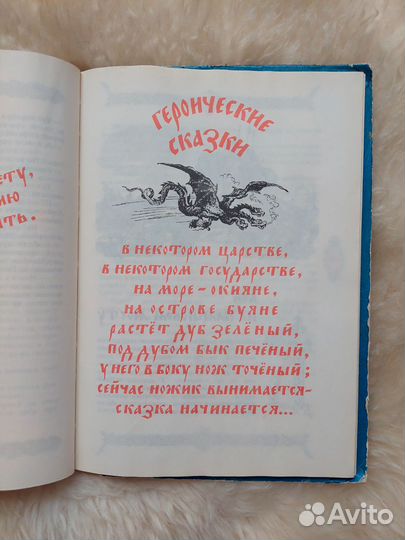 ету,
ию
ть.
ГЕРОИЧЕСКИЕ
СКАЗКИ
В НЕКОТОРОМ ЦАРСТВЕ,
В НЕКОТОРОМ ГОСУДАРСТВЕ,
НА МОРЕ-ОКИЯНЕ,
НА ОСТРОВЕ БУЯНЕ
РАСТЁТ ДУБ ЗЕЛЁНЫЙ,
ПОД ДУБОМ БЫК ПЕЧЁНЫЙ,
У НЕГО В БОКУ НОЖ ТОЧЁНЫЙ;
СЕЙЧАС НОЖИК ВЫНИМАЕТСЯ-
СКАЗКА НАЧИНАЕТСЯ...
Avito